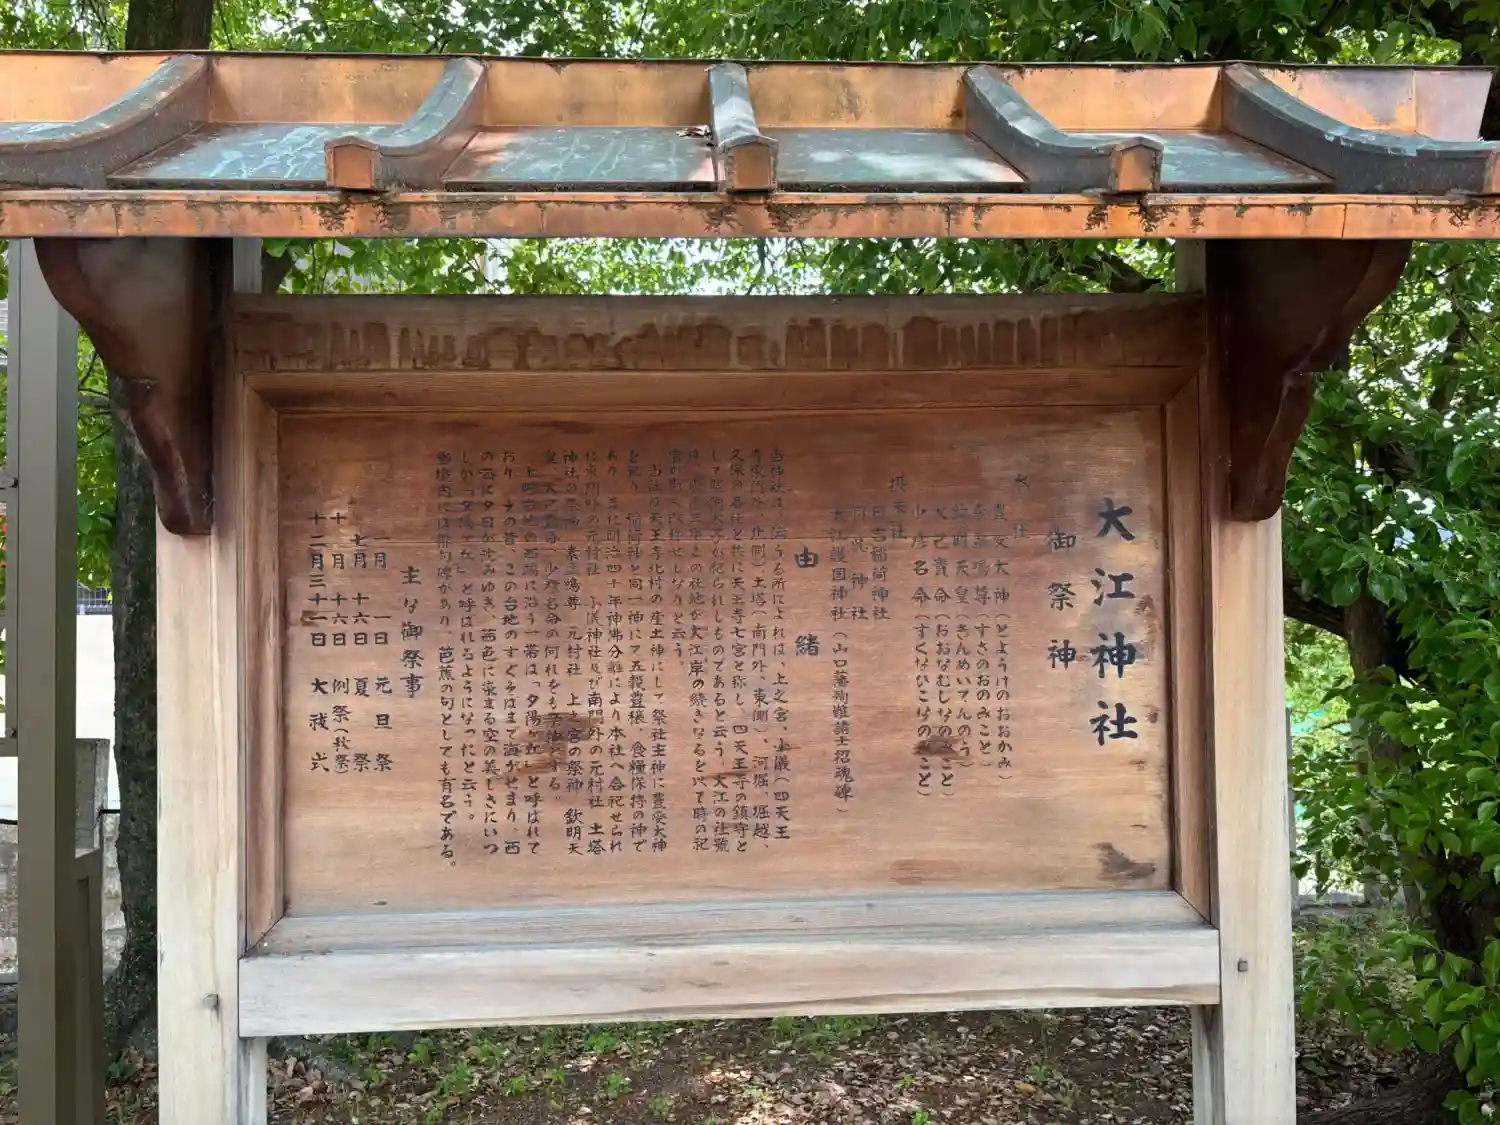 大江神社
御祭神
豊受大神(とようけのおおかみ)
素盞嗚尊(すさのおのみこと)
欽明天皇(きんめいてんのう)
大己貴命(おおなむしなのみこと)
少彦名命(すくなひこなのみこと)
摂末社
日吉稲荷神社
神社
大江護国神社(山口藩殉難諸士招魂碑)
由緒
当神社は、伝うる所によれば、上之宮、小儀(四天王
寺東門外、北側)土塔(南門外、東側)、河堀、堀越、
久保の各社と共に天王寺七宮と称し、四天王寺の鎮守と
して聖徳太子が祀られしものであると云う。大江の社号
の社地が大江岸の続きなるを以て時の祀
官が斯く ならんと云う。
当社は天王寺北村の産土神にして祭社主神に豊受大神
を祀り、稲荷神と同一神にて五穀豊穣、食糧保持の神で
あり、更に明治四十年神佛分離により本社へ合祀せられ
た東門外の元村社 小儀神社及び南門外の元村社 土塔
神社の祭神 素盞嗚尊、元村社 上之宮の祭神 欽明天
皇、大己貴命、少彦名命の何れをも祭神とする。
上町台地の西端に沿う一帯は「夕陽ヶ丘」と呼ばれて
おり、その昔、この台地のすぐそばまで海がせまり、西
の海に夕日が沈みゆき、茜色に染まる空の美しさにいつ
しか「夕陽ヶ丘」と呼ばれるようになったと云う。
当境内には俳句碑があり、芭蕉の句としても有名である。
主な御祭事
一月 一日 元旦祭
七月 十六日 夏祭
十月 十六日 例祭(秋祭)
十二月三十一日 大祓式